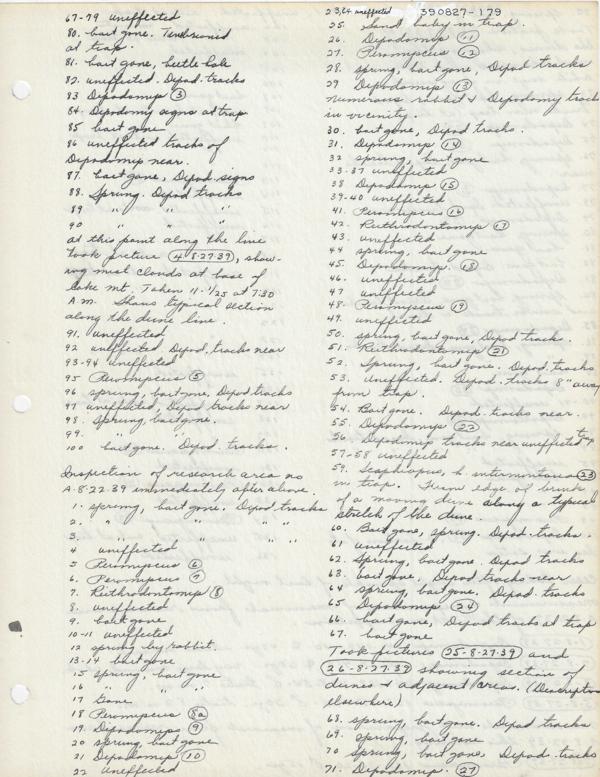 67-79 uneffected
80. bait gone. Tenebrionid
at trap.
81. bait gone, beetle hole
82. uneffected. Depod. tracks
83 Depodomys (3)
84. Depodomy signs at trap
85 bait gone
86 uneffected tracks of
Depodomys near.
87. bait gone, Depod. signs
88. Sprung. Depod tracks
89 " " "
90 " " "
at this point along the line
took picture (4-8-27-39), show-
ing mist clouds at base of
Lake Mt. Taken 11-1/25 at 7:30
A.M. Shows typical section
along the dune line.
91. uneffected
92 uneffected. Depod. tracks near
93-94 uneffected
95 Peromyscus (5)
96 sprung, bait gone, Depod. tracks
97 uneffected, Depod tracks near
98. Sprung, bait gone.
99. " " "
100 bait gone. Depod. tracks.
Inspection of research area no
A-8-22-39 immediately after above.
1. sprung, bait gone. Depod. tracks
2. " " " " "
3. " " " " "
4 uneffected
5 Peromyscus (6)
6. Peromyscus (7)
7. Reithrodontomys (8)
8. uneffected
9. bait gone
10-11 uneffected
12 sprung by rabbit.
13-14 bait gone
15 sprung, bait gone
16 " " "
17 Gone
18 Peromyscus (8a)
19. Depodomys (9)
20 sprung bait gone
21 Depodomys (10)
22 uneffected
23,24. uneffected
390827-179
25. Sand baby in trap.
26. Depodomys (11)
27. Peromyscus (12)
28. spring, bait gone, Depod tracks
29 Depodomys (13)
numerous rabbit & Depodomy tracks
in vicinity.
30. bait gone, Depod tracks.
31. Depodomys (14)
32 sprung, bait gone
33-37 uneffected
38 Depodomys (15)
39-40 uneffected
41. Peromyscus (16)
42. Reithrodontomys (17)
43. uneffected
44 sprung, bait gone
45. Depodomys. (18)
46. uneffected
47 uneffected
48- Peromyscus (19)
49. uneffected
50. sprung, bait gone, Depod tracks.
51. Reithrodontomys (21)
52. Sprung, bait gone. Depod. tracks
53. Uneffected. Depod. tracks 8" away
from trap.
54. Bait gone. Depod. tracks near.
55. Depodomys (22)
56. Depodomys tracks near uneffected trap
57-58 uneffected
59. Scaphiopus, h. intermontanus (23)
in trap. From edge of brink
of a moving dune along a typical
stretch of the dune.
60. Bait gone, sprung. Depod. tracks.
61 uneffected
62. Sprung, bait gone. Depod. tracks
63. bait gone, Depod tracks near
64 sprung, bait gone. Depod. tracks
65 Depodomys (24)
66. bait gone, Depod tracks at trap
67. bait gone
Took pictures (25-8-27-39) and
(26-8-27-39) showing section of
dunes & adjacent areas. (Description
elsewhere)
68. sprung, bait gone. Depod tracks
69. sprung, bait gone
70 sprung, bait gone, Depod. tracks
71. Depodomys. (27)